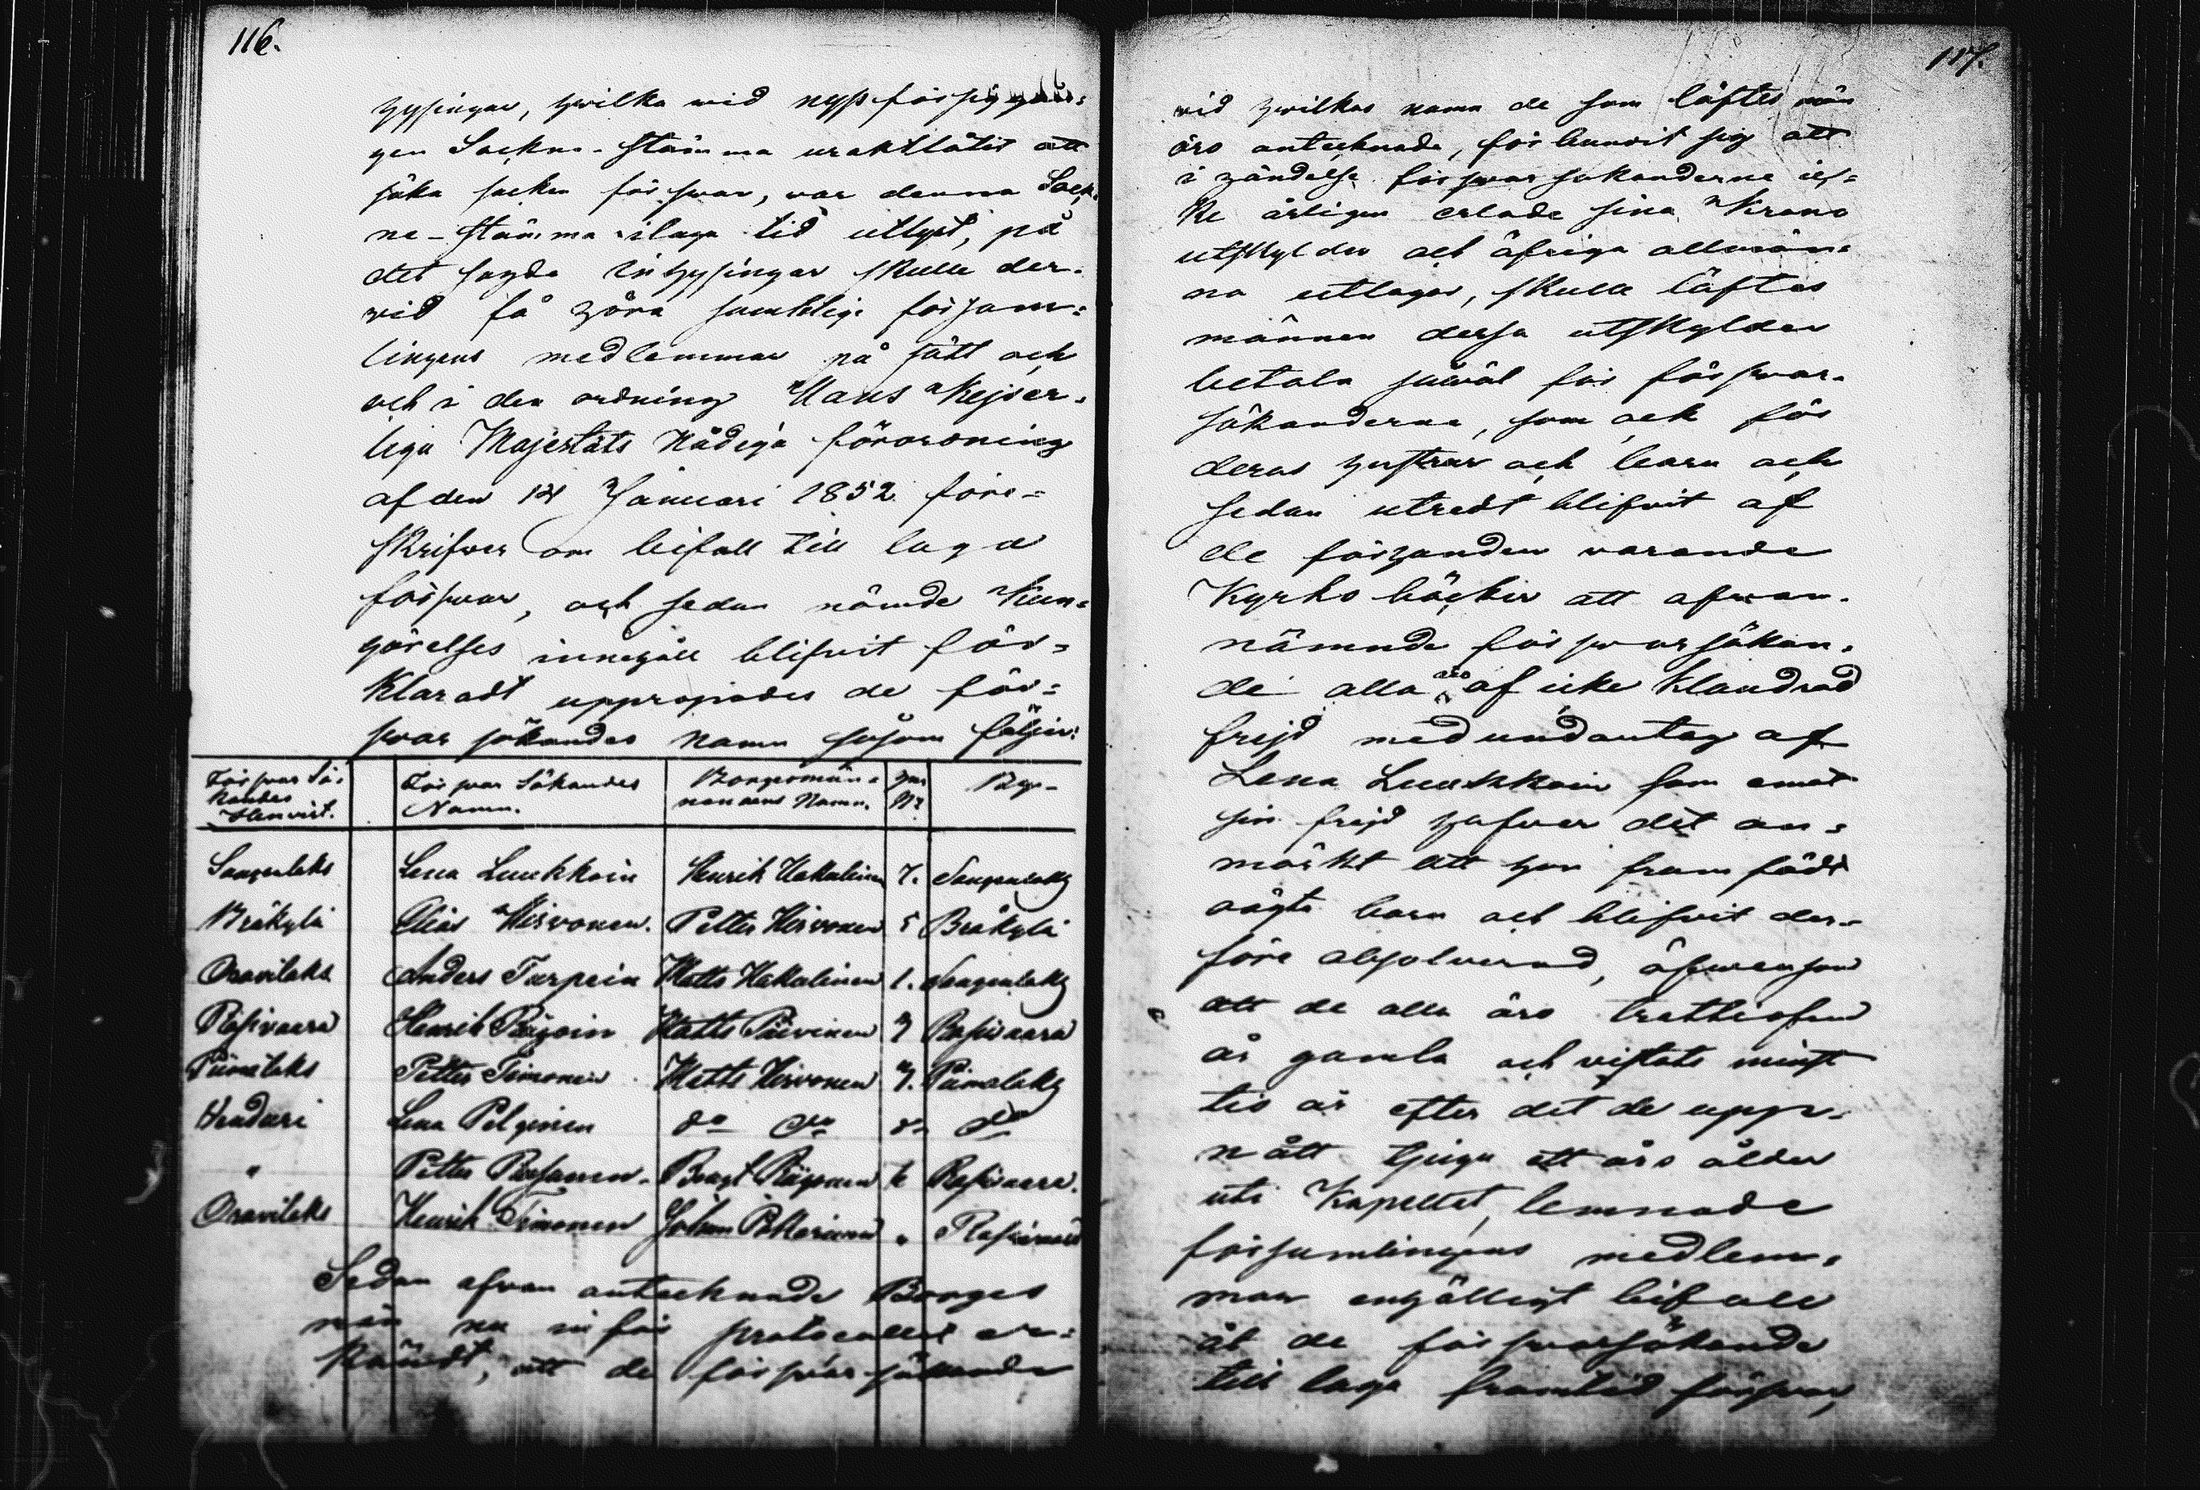 116.
hysingar, hwilka wid nyss förfly
gen Sockne-stämma uraktlåtit att
söka socken försvar, war denna Sock
ne-stämma i laga tid utlyst, på
det sagde Inhysingar skulle der-
vid få höra samtlige försam-
lingens medlemmar på sätt och
och i den ordning Hans Kejser-
liga Majestäts Nådiga förordning
af den 12 Januari 1852 före-
skrifver om bifall till laga
försvar, och sedan nämde Kun-
görelses innehåll blifvit för-
klaradt uppropades de för-
svar sökandes namn såsom följer:
Försvar Sö-
kandes
Hemvist.
Försvar Sökandes
Namn.
Borgesmän-
nernas Namn.
Hm
No
By-
Sangenlaks
Lena Luukkain
Henrik Hakulinen
7.
Sangenlaks
Bråkylä
Elias Hirvonen.
Petter Hirvonen
5
Bråkylä
Oravilaks
Anders Turpein
Matts Hakulinen
1.
Sangenlaks
Rasivaara
Henrik
Matts Päivinen
9
Rasivaara
Piimälaks
Petter Timonen
Matts Hirvonen
9.
Piimälaks
Lena Pelgonen
do do
do
do
"
Petter
Bengt
Rasivaara.
Oravilaks
Henrik Timonen
Johan
"
Rasivaara
Sedan ofvan antecknade Borges
män nu inför protocollet er-
kändt, att de försvar sökande
117.
vid hwilkas namn de som löftes män
äro antecknade, förbundit sig att
i händelse försvarsökanderne ic-
ke årligen erlade sina Krono
utskylder och öfriga allmän-
na utlagor, skulle löftes
männen dessa utskylder
betala såväl för försvar-
sökanderna, som ock för
deras hustrur och barn och
sedan utredt blifvit af
de förhanden varande
Kyrko böcker att ofvan-
nämnde försvarsökan-
de alla äro af icke klandrad
frejd med undantag af
Lena Luukkain som emot
sin frejd hafver det an-
märkt att hon framfödt
oägta barn och blifvit der-
före absolverad, äfvensom
att de alla äro trettiofem
år gamla och vistats minst
tio år efter det de upp-
nått tjugu ett års ålder
uti Kapellet, lemnade
församlingens medlem-
mar enhälligt bifall
åt de försvarsökande
till laga framtid försvar,